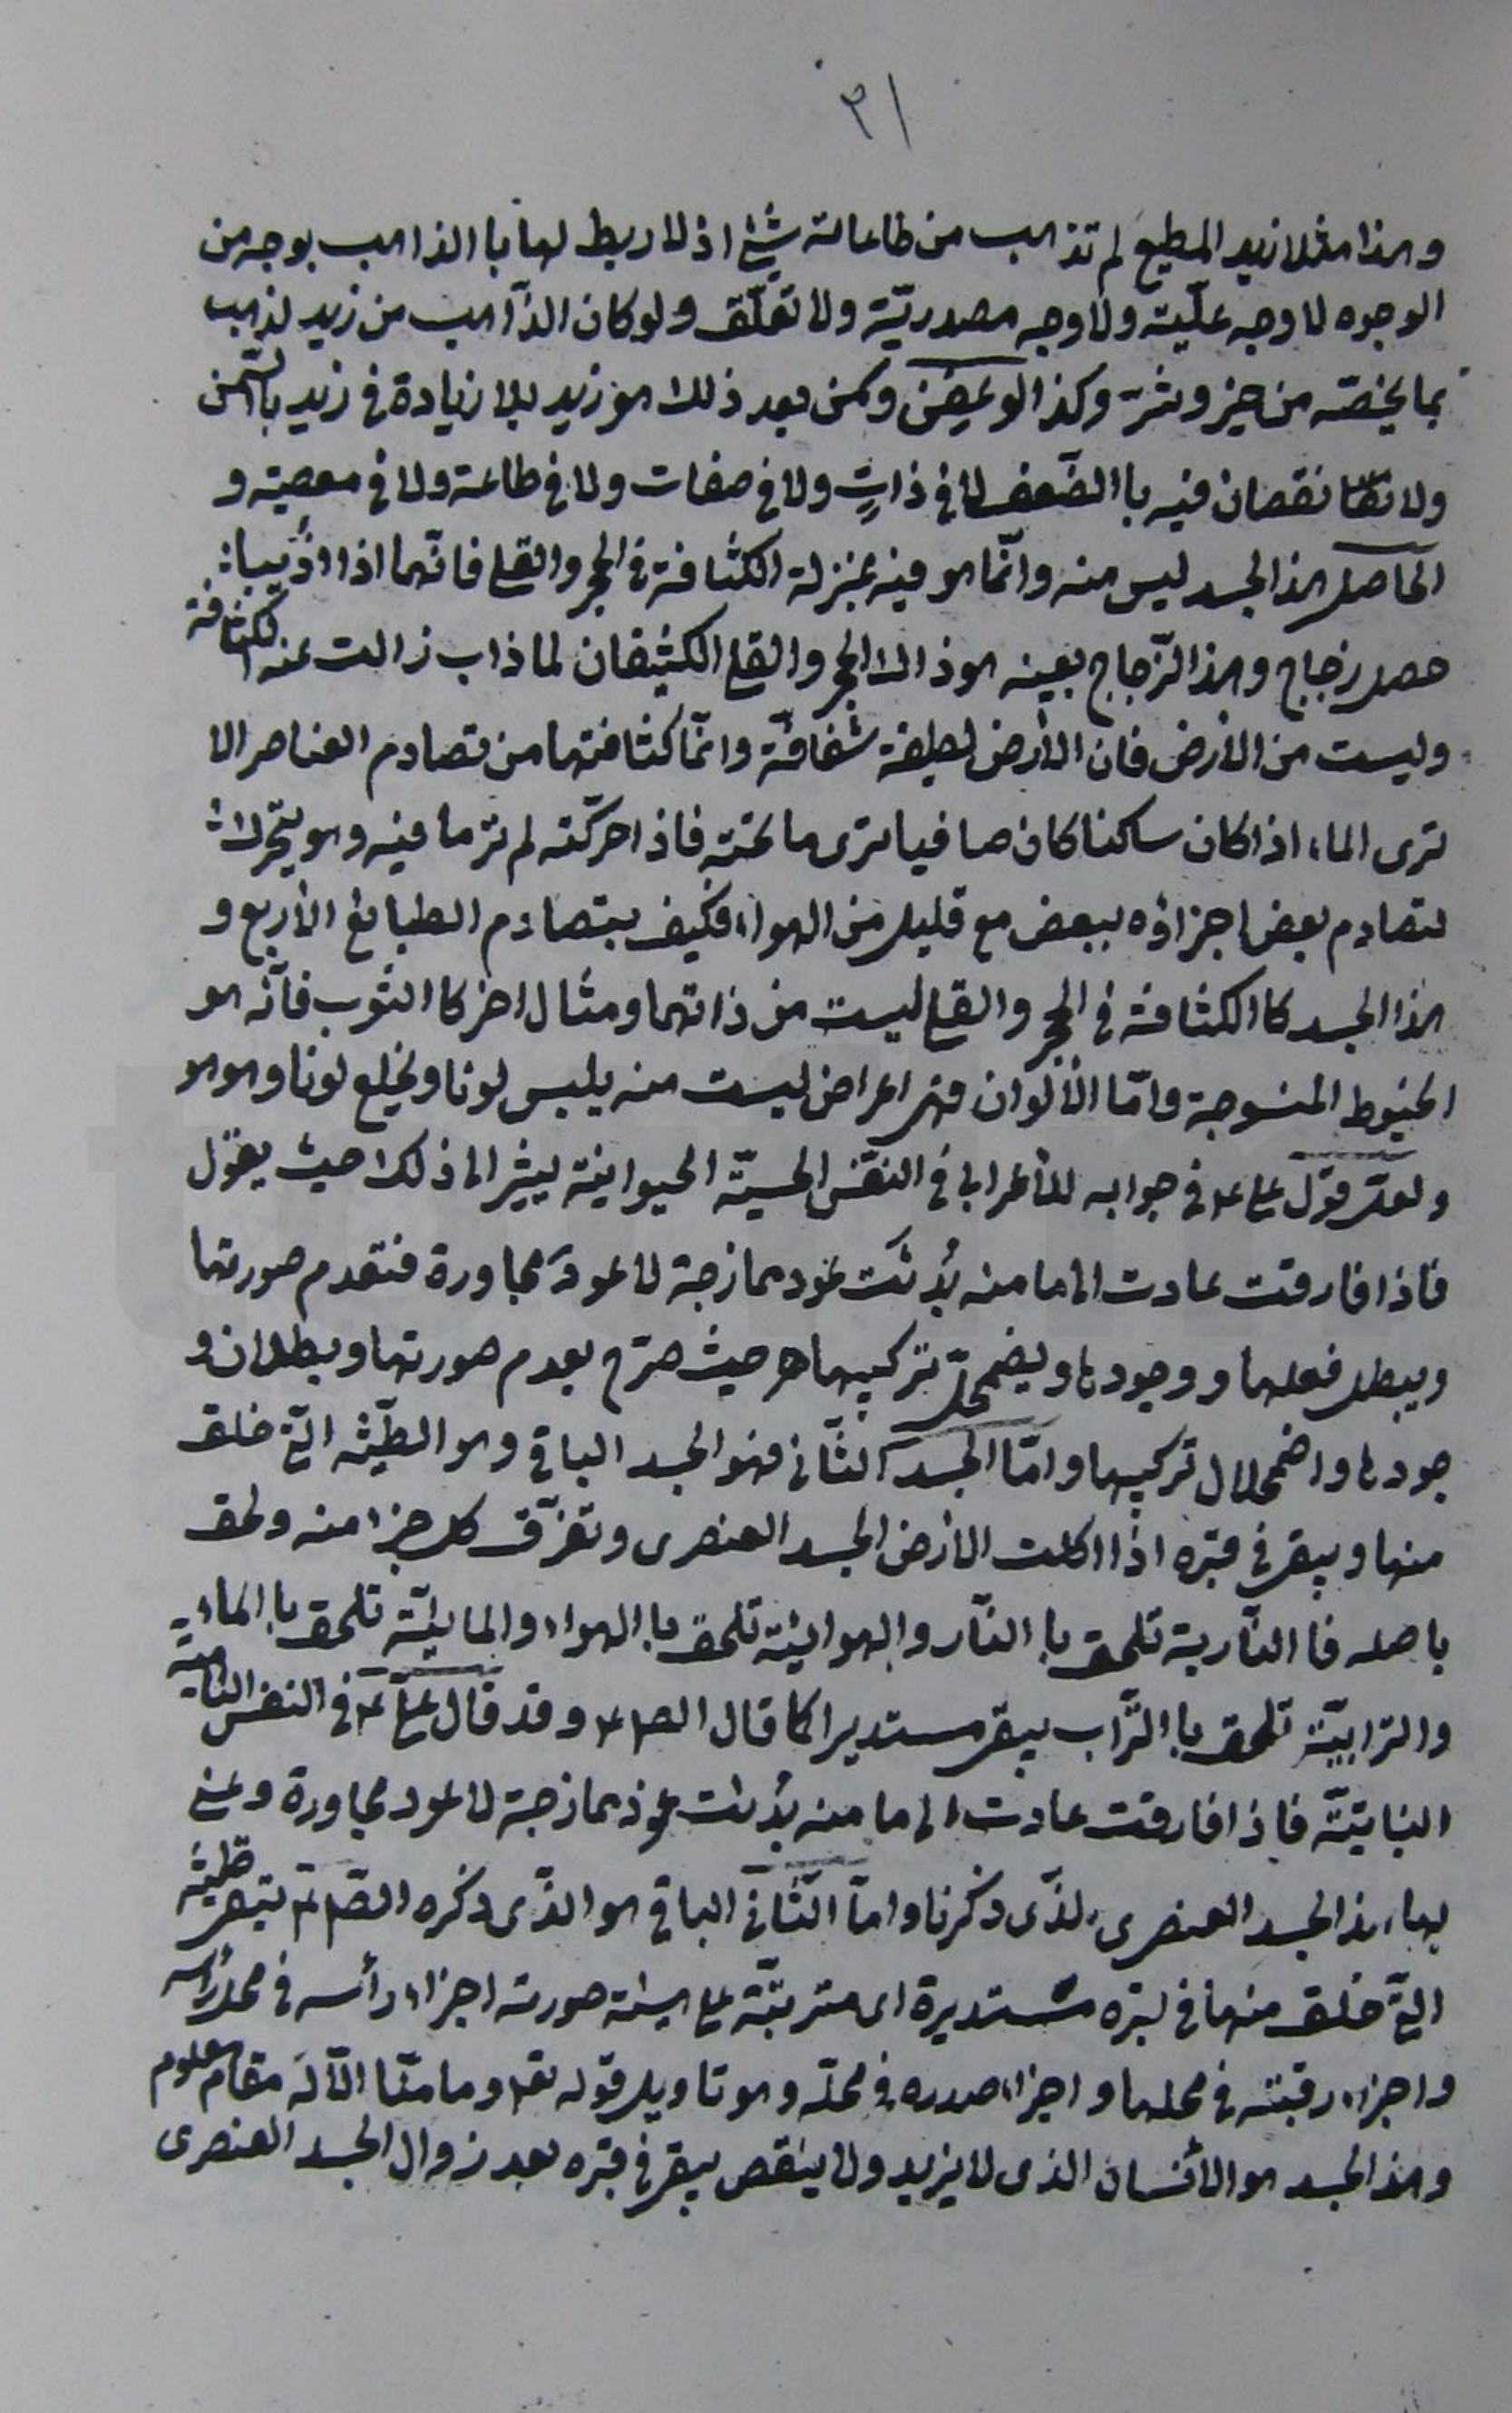 ٣١
وهذا مثلا زيد المطيع لم تذهب من طاعاته شئ اذ لا ربط لها با الذاهب بوجه من
الوجوه لا وجه علّية ولا وجه مصدريّة ولا تعلّق ولو كان الذّاهب من زيد لذهب
بما يخصّه من خير وشرّ وكذا لو عفن وكمن بعد ذلك هو زيد بلا زيادة فى زيد بالسّمن
ولا نقصان فيه با الضّعف لا فى ذاتٍ ولا فى صفات ولا فى طاعة ولا فى معصية و
الحاصل هذا الجسد ليس منه وانّما هو فيه بمنزلة الكثافة فى الحجر والقلع فانّهما اذا اذيبا
حصل زجاج وهذا الزّجاج بعينه هو ذالك الحجر والقلع الكثيفان لما ذاب زالت عنه الكثافة
وليست من الأرض فان الأرض لطيفة شفافّة وانمّا كثافتها من تصادم العناصر الا
ترى الماء اذا كان ساكنا كان صافيا ترى ما تحته فاذا حركّته لم تر ما فيه وهو يتحرك
لتصادم بعض اجزاؤه ببعض مع قليل من الهواء فكيف بتصادم الطبايع الأربع و
هذا الجسد كا الكثافة فى الحجر والقلع ليست من ذاتهما ومثال اخر كا الثوب فانّه هو
الخيوط المنسوجة وامّا الألوان فهى اعراض ليست منه يلبس لونا ويخلع لونا وهو هو
ولعلّ قول على ع فى جوابه للأعرابى فى النفّس الحسيّة الحيوانية يشير الى ذلك حيث يقول
فاذا فارقت عادت الى ما منه بُدئت عود ممازجة لا عود مجاورة فتعدم صورتها
ويبطل فعلها ووجودها ويضمحلّ تركيبها ه حيث صرّح بعدم صورتها وبطلان و
جودها واضمحلال تركيبها وامّا الجسد الثّانى فهو الجسد الباقى وهو الطّينة الّتى خلق
منها ويبقى فى قبره اذا اكلت الأرض الجسد العنصرى وتفرّق كل جزء منه ولحق
باصله فا النّارية تلحق با النّار والهوائية تلحق با الهواء والمائيّة تلحق با الماء
والترابيّة تلحق با التّراب يبقى مستديرا كما قال الص ع وقد قال علىّ ع فى النفس النامية
النباتيّة فاذا فارقت عادت الى ما منه بُدئت عود ممازجة لا عود مجاورة وعنى
بها هذا الجسد العنصرى الذّى ذكرنا وامّا الثّانى الباقى هو الذّى ذكره الصّ ع تبقى طينته
التّى خلق منها فى قبره مستديرة اى مترتبّة على هيئة صورته اجزاء رأسه فى محل رأسه
واجزاء رقبته فى محلها واجزاء صدره فى محلّه وهو تاويل قوله تع وما منّا الّا له مقام معلوم
وهذا الجسد هو الأنسان الذى لا يزيد ولا ينقص يبقى فى قبره بعد زوال الجسد العنصرى